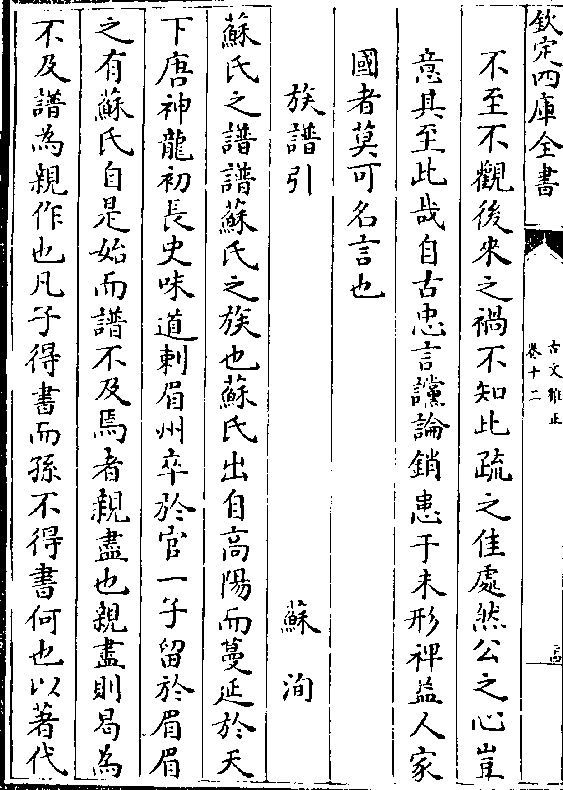 欽定四庫全書
古文雅正
卷十二
不至不觀後來之禍不知此疏之佳處然公之心豈
意其至此哉自古忠言讜論銷患于未形裨益人家
國者莫可名言也
族譜引 蘇洵
蘇氏之譜譜蘇氏之族也蘇氏出自高陽而蔓延於天
下唐神龍初長史味道刺眉州卒於官一子留於眉眉
之有蘇氏自是始而譜不及焉者親盡也親盡則曷為
不及譜為親作也凡子得書而孫不得書何也以著代